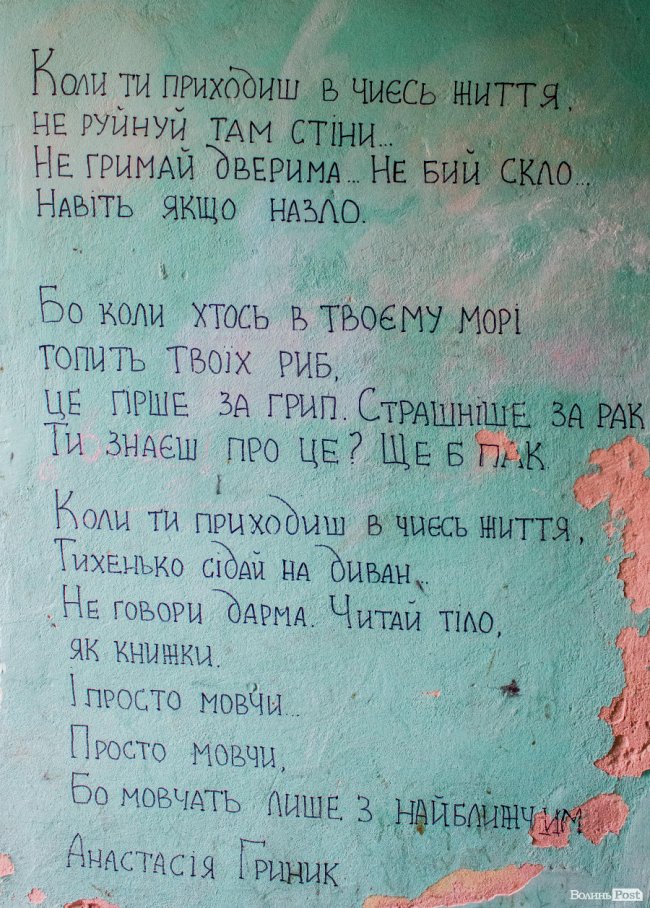 Коли ти приходиш в чиєсь життя,
не руйнуй там стіни...
Не гримай дверима... Не бий скло...
Навіть якщо назло.
Бо коли хтось в твоєму морі
топить твоїх риб,
це гірше за грип. Страшніше за рак
Ти знаєш про це? Ще б пак
Коли ти приходиш в чиєсь життя,
Тихенько сідай на диван...
Не говори дарма. Читай тіло,
як книжки.
І просто мовчи...
Просто мовчи,
Бо мовчать лише з найближчим
Анастасія Гриник
ВолиньPost